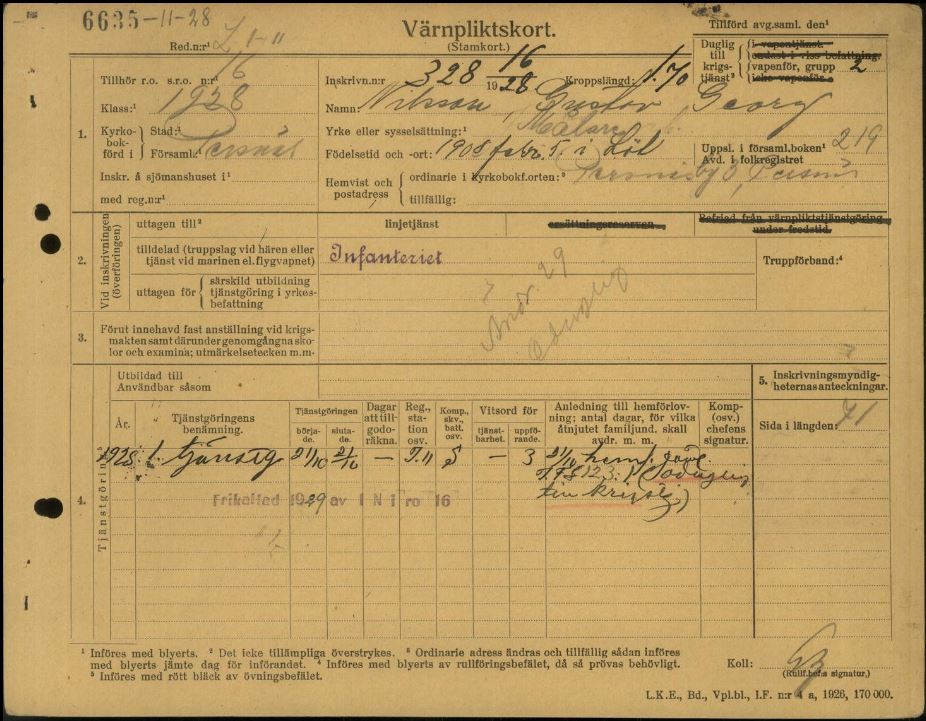 6635-11-28
Värnpliktskort.
(Stamkort.)
Tillförd avg.saml. den¹
Red.n:r¹
Tillhör r.o. s.r.o. n:r¹ 16
Inskrivn.n:r 328 16
1928
Kroppslängd: 1.70
Duglig till krigs-tjänst²
i vapentjänst.
endast i viss befattning.
vapenför, grupp 2
icke vapenför.
Klass:¹ 1928
Namn: Nilsson, Gustov Georg
1.
Kyrko-bok-förd i
Stad:¹
Församl.¹
Yrke eller sysselsättning:¹ Målare
Födelsetid och -ort: 1908 febr. 5. i Löt
Uppsl. i församl.boken¹ 219
Avd. i folkregistret
Inskr. å sjömanshuset i¹
med reg.n:r¹
Hemvist och postadress
ordinarie i kyrkobokf.orten:³
tillfällig:
Vid inskrivningen (överföringen)
2.
uttagen till²
linjetjänst
ersättningsreserven
Befriad från värnpliktstjänstgöring under fredstid.
tilldelad (truppslag vid hären eller tjänst vid marinen el. flygvapnet)
Infanteriet
Truppförband:⁴
uttagen för
särskild utbildning
tjänstgöring i yrkes-
befattning
3.
Förut innehavd fast anställning vid krigs-
makten samt därunder genomgångna sko-
lor och examina; utmärkelsetecken m.m.
Utbildad till
Användbar såsom
5. Inskrivningsmyndig-
heternas anteckningar.
Sida i längden: 71
4.
Tjänstgöring
År.
Tjänstgöringens benämning.
Tjänstgöringen
börja-de.
sluta-de.
Dagar att till-godo-räkna.
Reg., sta-tion osv.
Komp., skv., batt. osv.
Vitsord för
tjänst-barhet.
uppfö-rande.
Anledning till hemförlov-ning; antal dagar, för vilka åtnjutet familjund. skall avdr. m. m.
Komp-(osv.) chefens signatur.
1928 1. tjänstg 21/10 21/10 — I.11 5 — 3 21/10
Frikallad 1929 av I N i ro 16
¹ Införes med blyerts. ² Det icke tillämpliga överstrykes. ³ Ordinarie adress ändras och tillfällig sådan införes
med blyerts jämte dag för införandet. ⁴ Införes med blyerts av rullföringsbefälet, då så prövas behövligt.
⁵ Införes med rött bläck av övningsbefälet.
Koll:
(Rullf.befs signatur.)
L.K.E., Bd., Vpl.bl., I.F. n:r 4 a, 1926, 170 000.